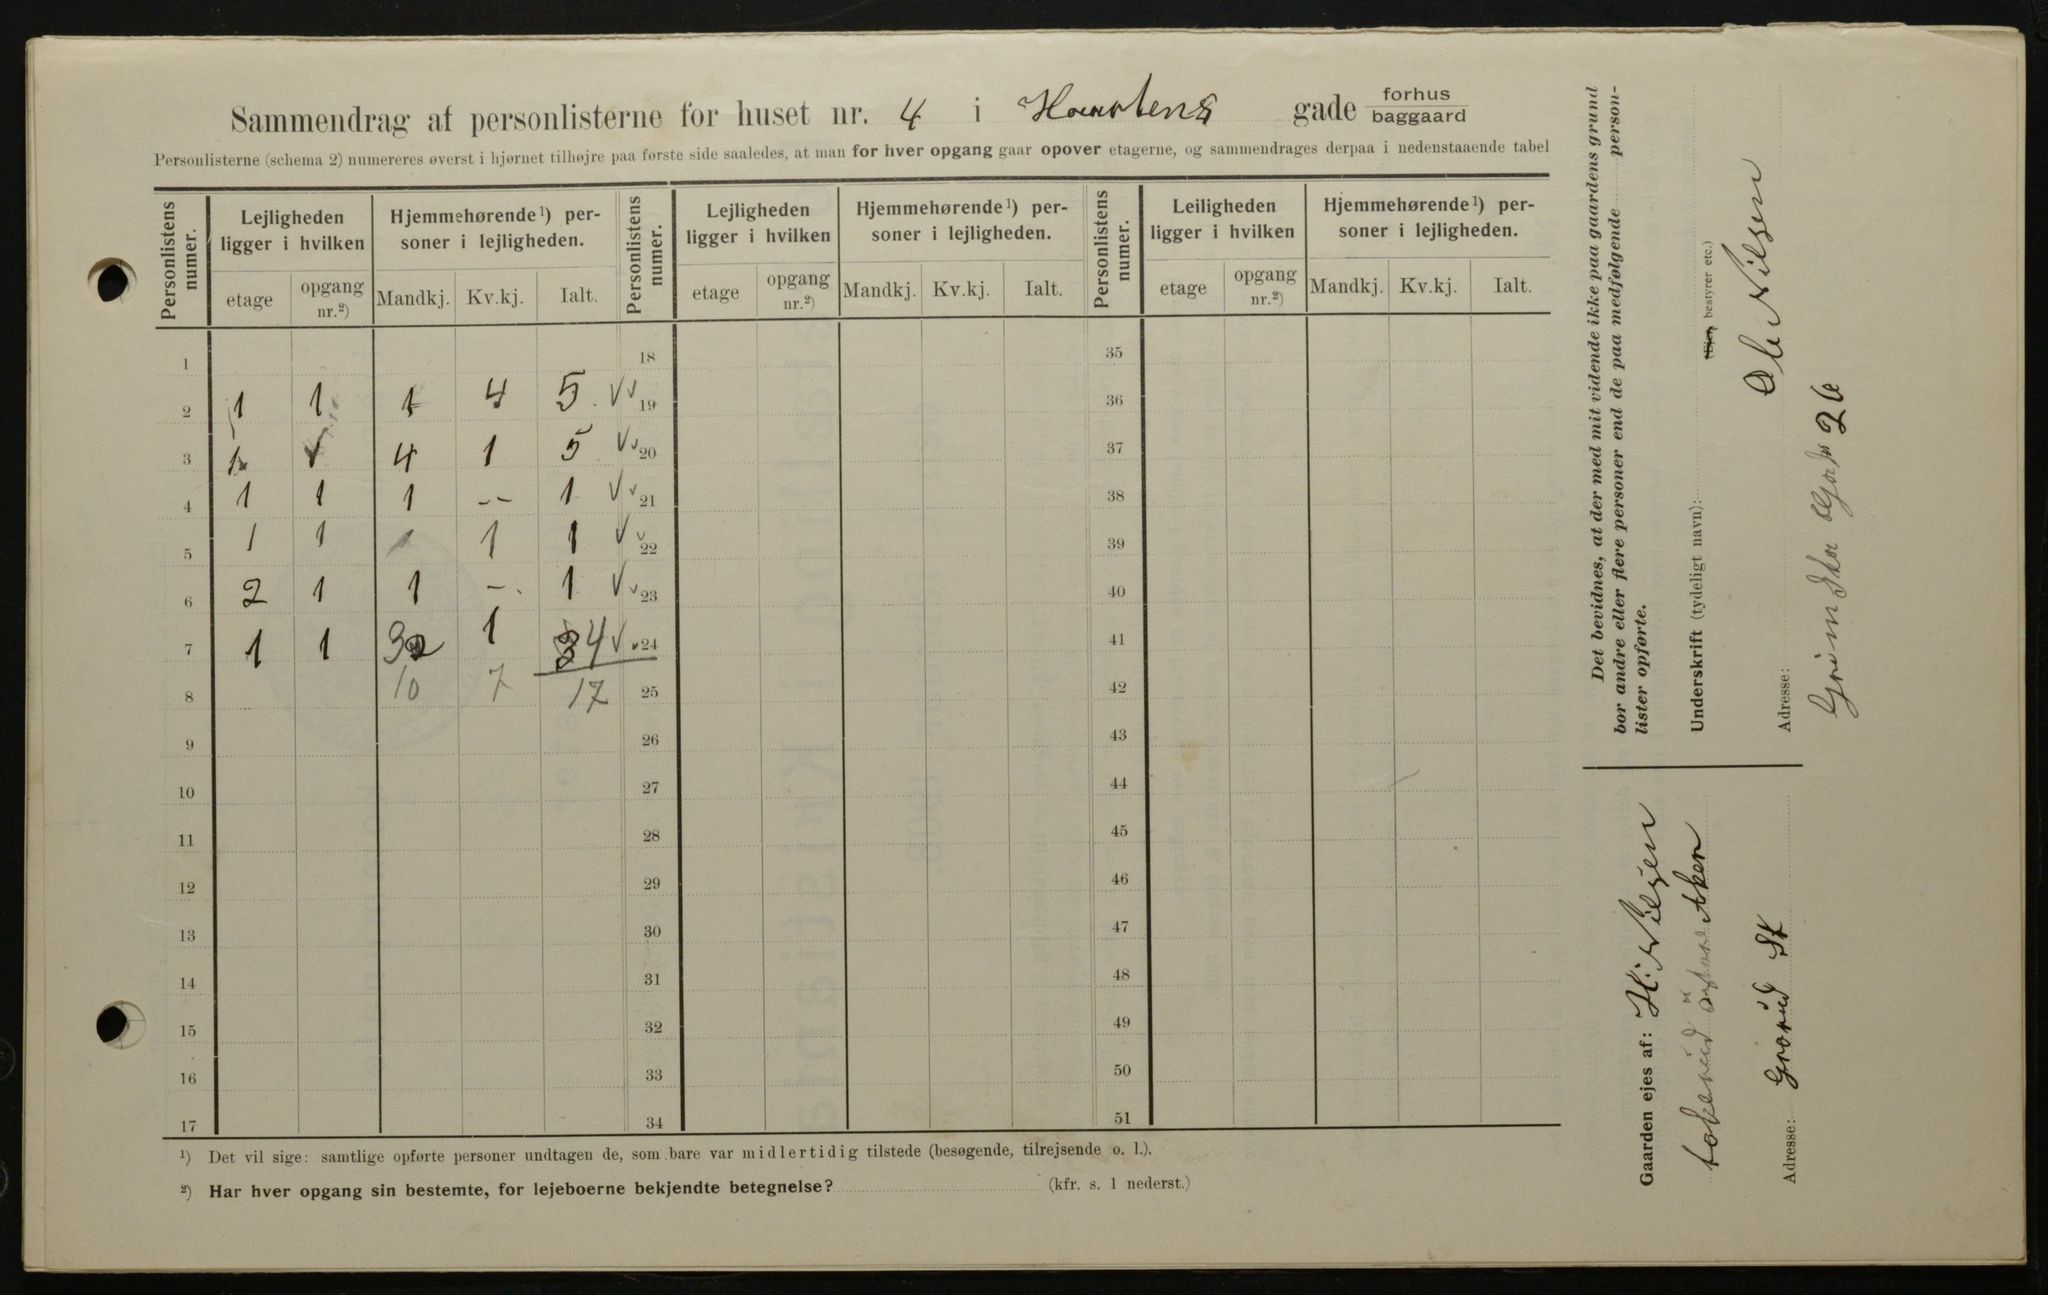 Sammendrag af personlisterne for huset nr. 4 i Haarstens gade forhus baggaard
Personlisterne (schema 2) numereres øverst i hjørnet tilhøjre paa første side saaledes, at man for hver opgang gaar opover etagerne, og sammendrages derpaa i nedenstaaende tabel
Personlistens numer. Lejligheden ligger i hvilken Hjemmehørende ¹) personer i lejligheden. Personlistens numer. Lejligheden ligger i hvilken Hjemmehørende ¹) personer i lejligheden. Personlistens numer. Leiligheden ligger i hvilken Hjemmehørende ¹) personer i lejligheden.
etage opgang nr.²) Mandkj. Kv.kj. Ialt. etage opgang nr.²) Mandkj. Kv.kj. Ialt. etage opgang nr.²) Mandkj. Kv.kj. Ialt.
1 18 35
2 1 1 1 4 5 19 36
3 1 1 4 1 5 20 37
4 1 1 1 -- 1 21 38
5 1 1 1 1 22 39
6 2 1 1 - 1 23 40
7 1 1 3 1 4 24 41
8 10 7 17 25 42
9 26 43
10 27 44
11 28 45
12 29 46
13 30 47
14 31 48
15 32 49
16 33 50
17 34 51
¹) Det vil sige: samtlige opførte personer undtagen de, som bare var midlertidig tilstede (besøgende, tilrejsende o. l.).
²) Har hver opgang sin bestemte, for lejeboerne bekjendte betegnelse? (kfr. s. 1 nederst.)
Det bevidnes, at der med mit vidende ikke paa gaardens grund
bor andre eller flere personer end de paa medfølgende personlister opførte.
Underskrift (tydeligt navn):
(Eier, bestyrer etc.)
Ole Nilsen
Adresse:
26
Gaarden ejes af: H. Nilsen
Aker
Adresse: Grorud St